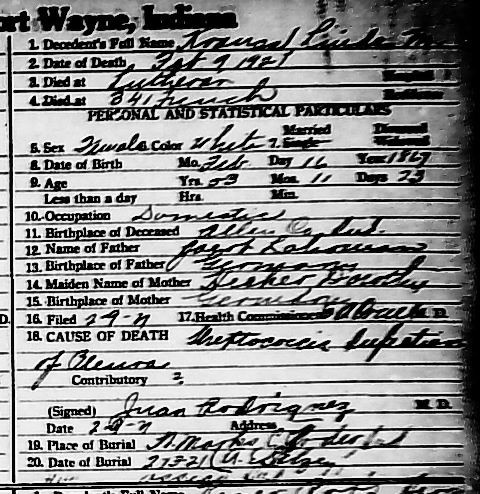 ort Wayne, Indiana
1. Decedent's Full Name Linda M
2. Date of Death Feb 9 1921
3. Died at Lutheran Hospital
4. Died at 341 French Residence
PERSONAL AND STATISTICAL PARTICULARS
5. Sex Female Color White 7. Single Married Widowed Divorced
8. Date of Birth Mo. Feb Day 16 Year 1867
9. Age Yrs. 53 Mos. 11 Days 23
Less than a day Hrs. Min.
10. Occupation Domestic
11. Birthplace of Deceased Allen Co Ind.
12. Name of Father Jacob
13. Birthplace of Father Germany
14. Maiden Name of Mother Dorothy
15. Birthplace of Mother Germany
D. 16. Filed 2-9-21 17. Health Commissioner M. D.
18. CAUSE OF DEATH Streptococcic Infection
of Pleura
Contributory ?
(Signed) Juan Rodriguez M. D.
Date 2-9-21 Address
19. Place of Burial St Marks
20. Date of Burial 2-13-21
Decedent's Full Name